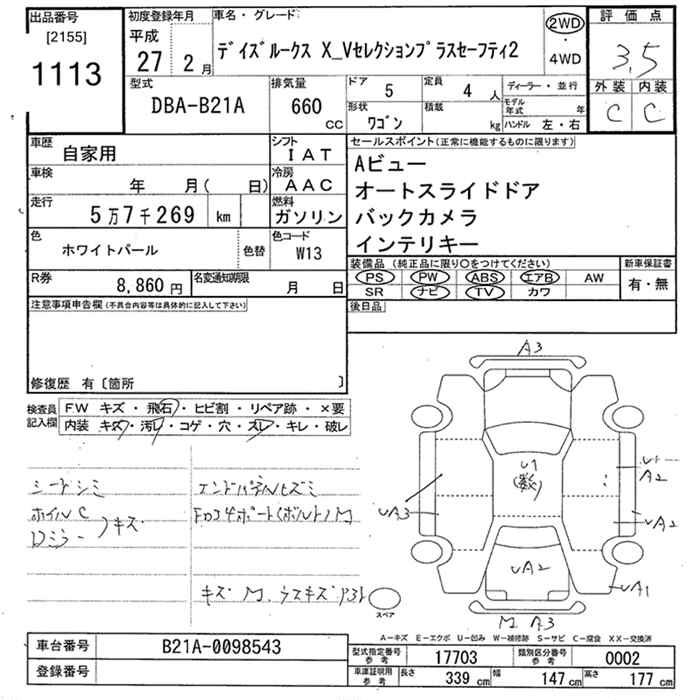 出品番号
[2155]
1113
初度登録年月
平成
27 2 月
車名・グレード
デイズルークス X_Vセレクションプラスセーフティ2
2WD
・
4WD
評価点
3.5
外装 内装
C C
型式
DBA-B21A
排気量
660
CC
ドア
5
定員
4 人
形状
ワゴン
積載
kg
ディーラー・並行
モデル年式 年
ハンドル 左・右
車歴
自家用
シフト
IAT
車検
年 月( 日)
冷房
AAC
走行
5万7千269 km
燃料
ガソリン
色
ホワイトパール
色替
色コード
W13
R券
8,860 円
名変通知期限
月 日
セールスポイント(正常に機能するものに限ります)
Aビュー
オートスライドドア
バックカメラ
インテリキー
装備品(純正品に限り○をつけてください)
PS PW ABS エアB AW
SR ナビ TV カワ
新車保証書
有・無
後日品
注意事項申告欄(不具合内容等は具体的に記入して下さい)
修復歴 有〔箇所 〕
検査員
記入欄
FW キズ・飛石・ヒビ割・リペア跡・×要
内装 キズ・汚レ・コゲ・穴・スレ・キレ・破レ
シートシミ
ホイルC
Dミラー
キズ
エンドパネルヒズミ
キズM
A3
U1
(数)
A2
UA2
UA3
UA2
UA1
M A3
スペア
A－キズ E－エクボ U－凹み W－補修跡 S－サビ C－腐食 XX－交換済
車台番号
B21A-0098543
登録番号
型式指定番号
参考
17703
類別区分番号
参考
0002
車庫証明用
参考
長さ 339 cm
幅 147 cm
高さ 177 cm